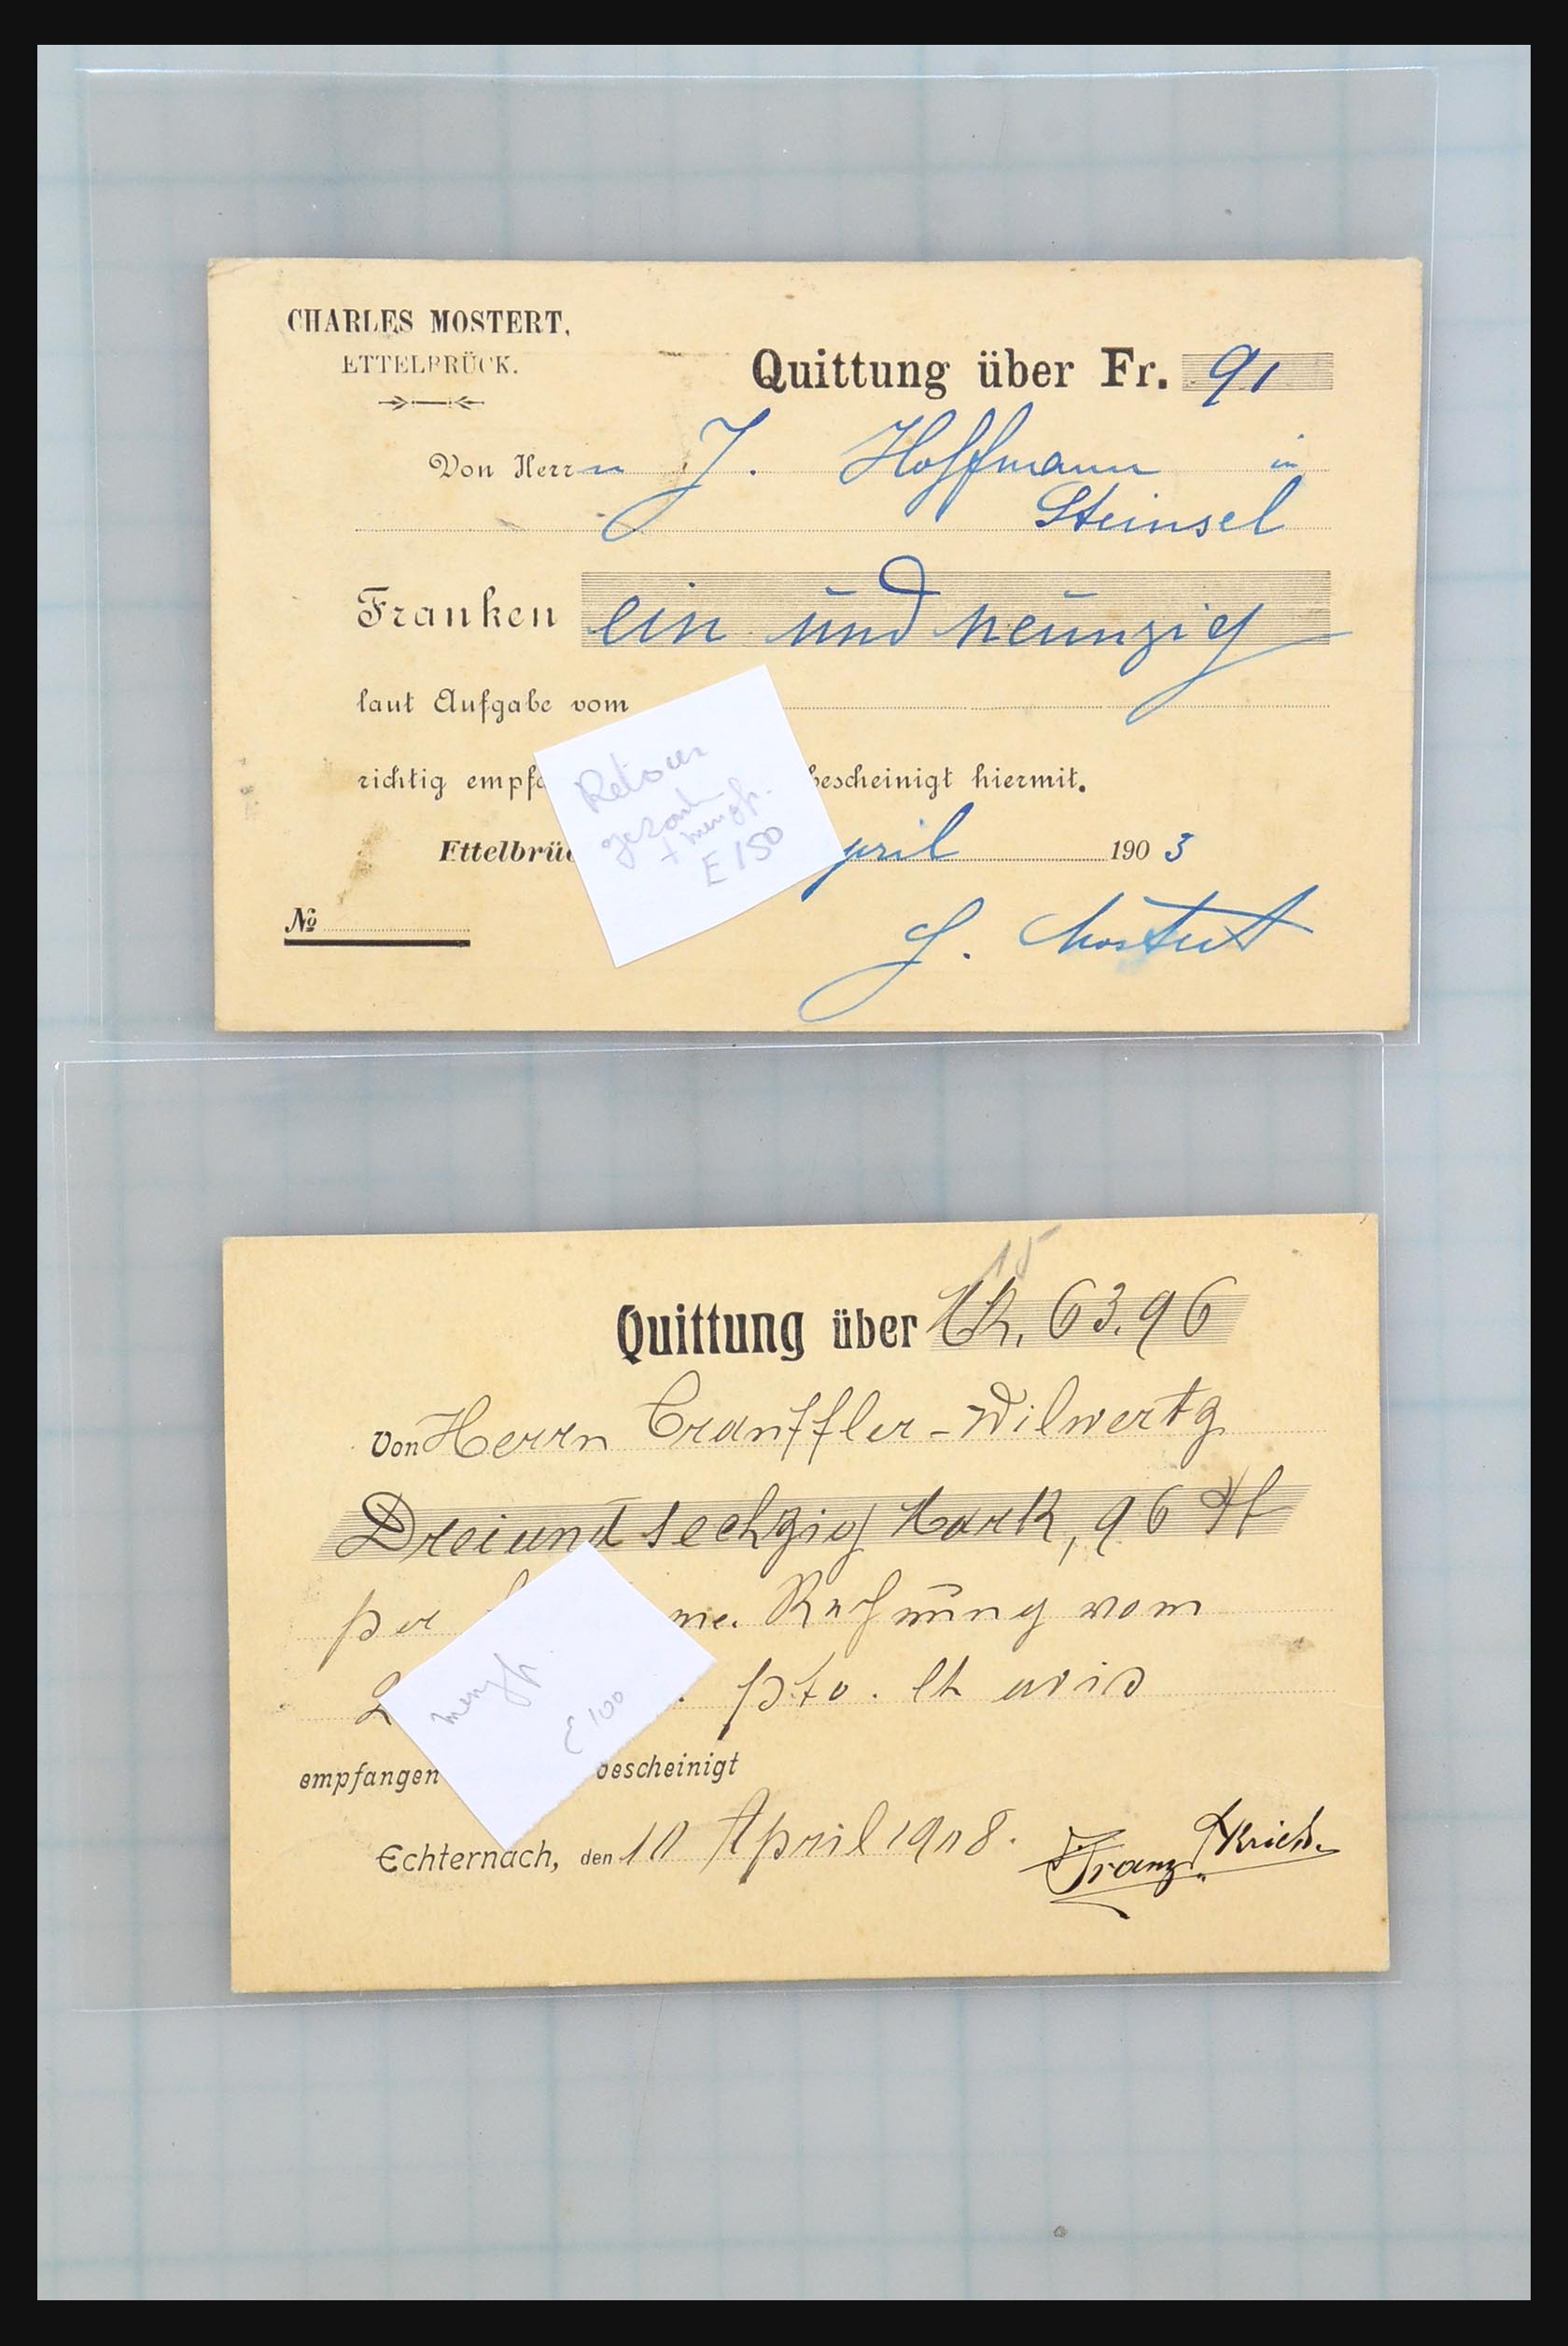 CHARLES MOSTERT,
ETTELBRÜCK.
Quittung über Fr. 91
Von Herrn J. Hoffmann in
Steinsel
Franken ein und neunzig
laut Aufgabe vom
richtig empf
bescheinigt hiermit.
Ettelbrü
pril 1903
№
Mostert
Retour
gezant
+ mengfr.
E 150
15
Quittung über Mk. 63.96
von Herrn Cranffler-Wilwertz
Dreiundsechzig Mark, 96
per me. Rechnung vom
pto. avis
empfangen bescheinigt
mengfr.
€ 100
Echternach, den 10 April 1908.
Franz